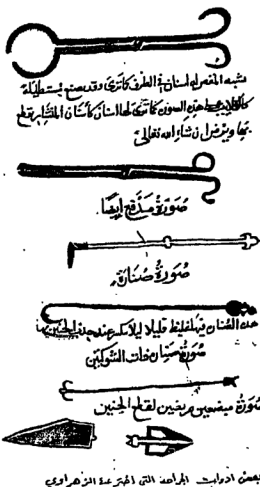 يشبه المقص له أسنان في الطرف كما ترى وقد يصنع مستطيلة
على هذه الصورة كما ترى لها أسنان كأسنان المنشار يقطع
بها ويرض إن شاء الله تعالى
صورة مدفع أيضا
صورة صنارة
هذه الصنارة فيها غلظ قليلا ليلا تنكسر عند جذب الجنين بها
صورة صنارة ذات الشوكتين
صورة مبضعين عريضين لقطع الجنين
بعض أدوات الجراحة التي اخترعها الزهراوي